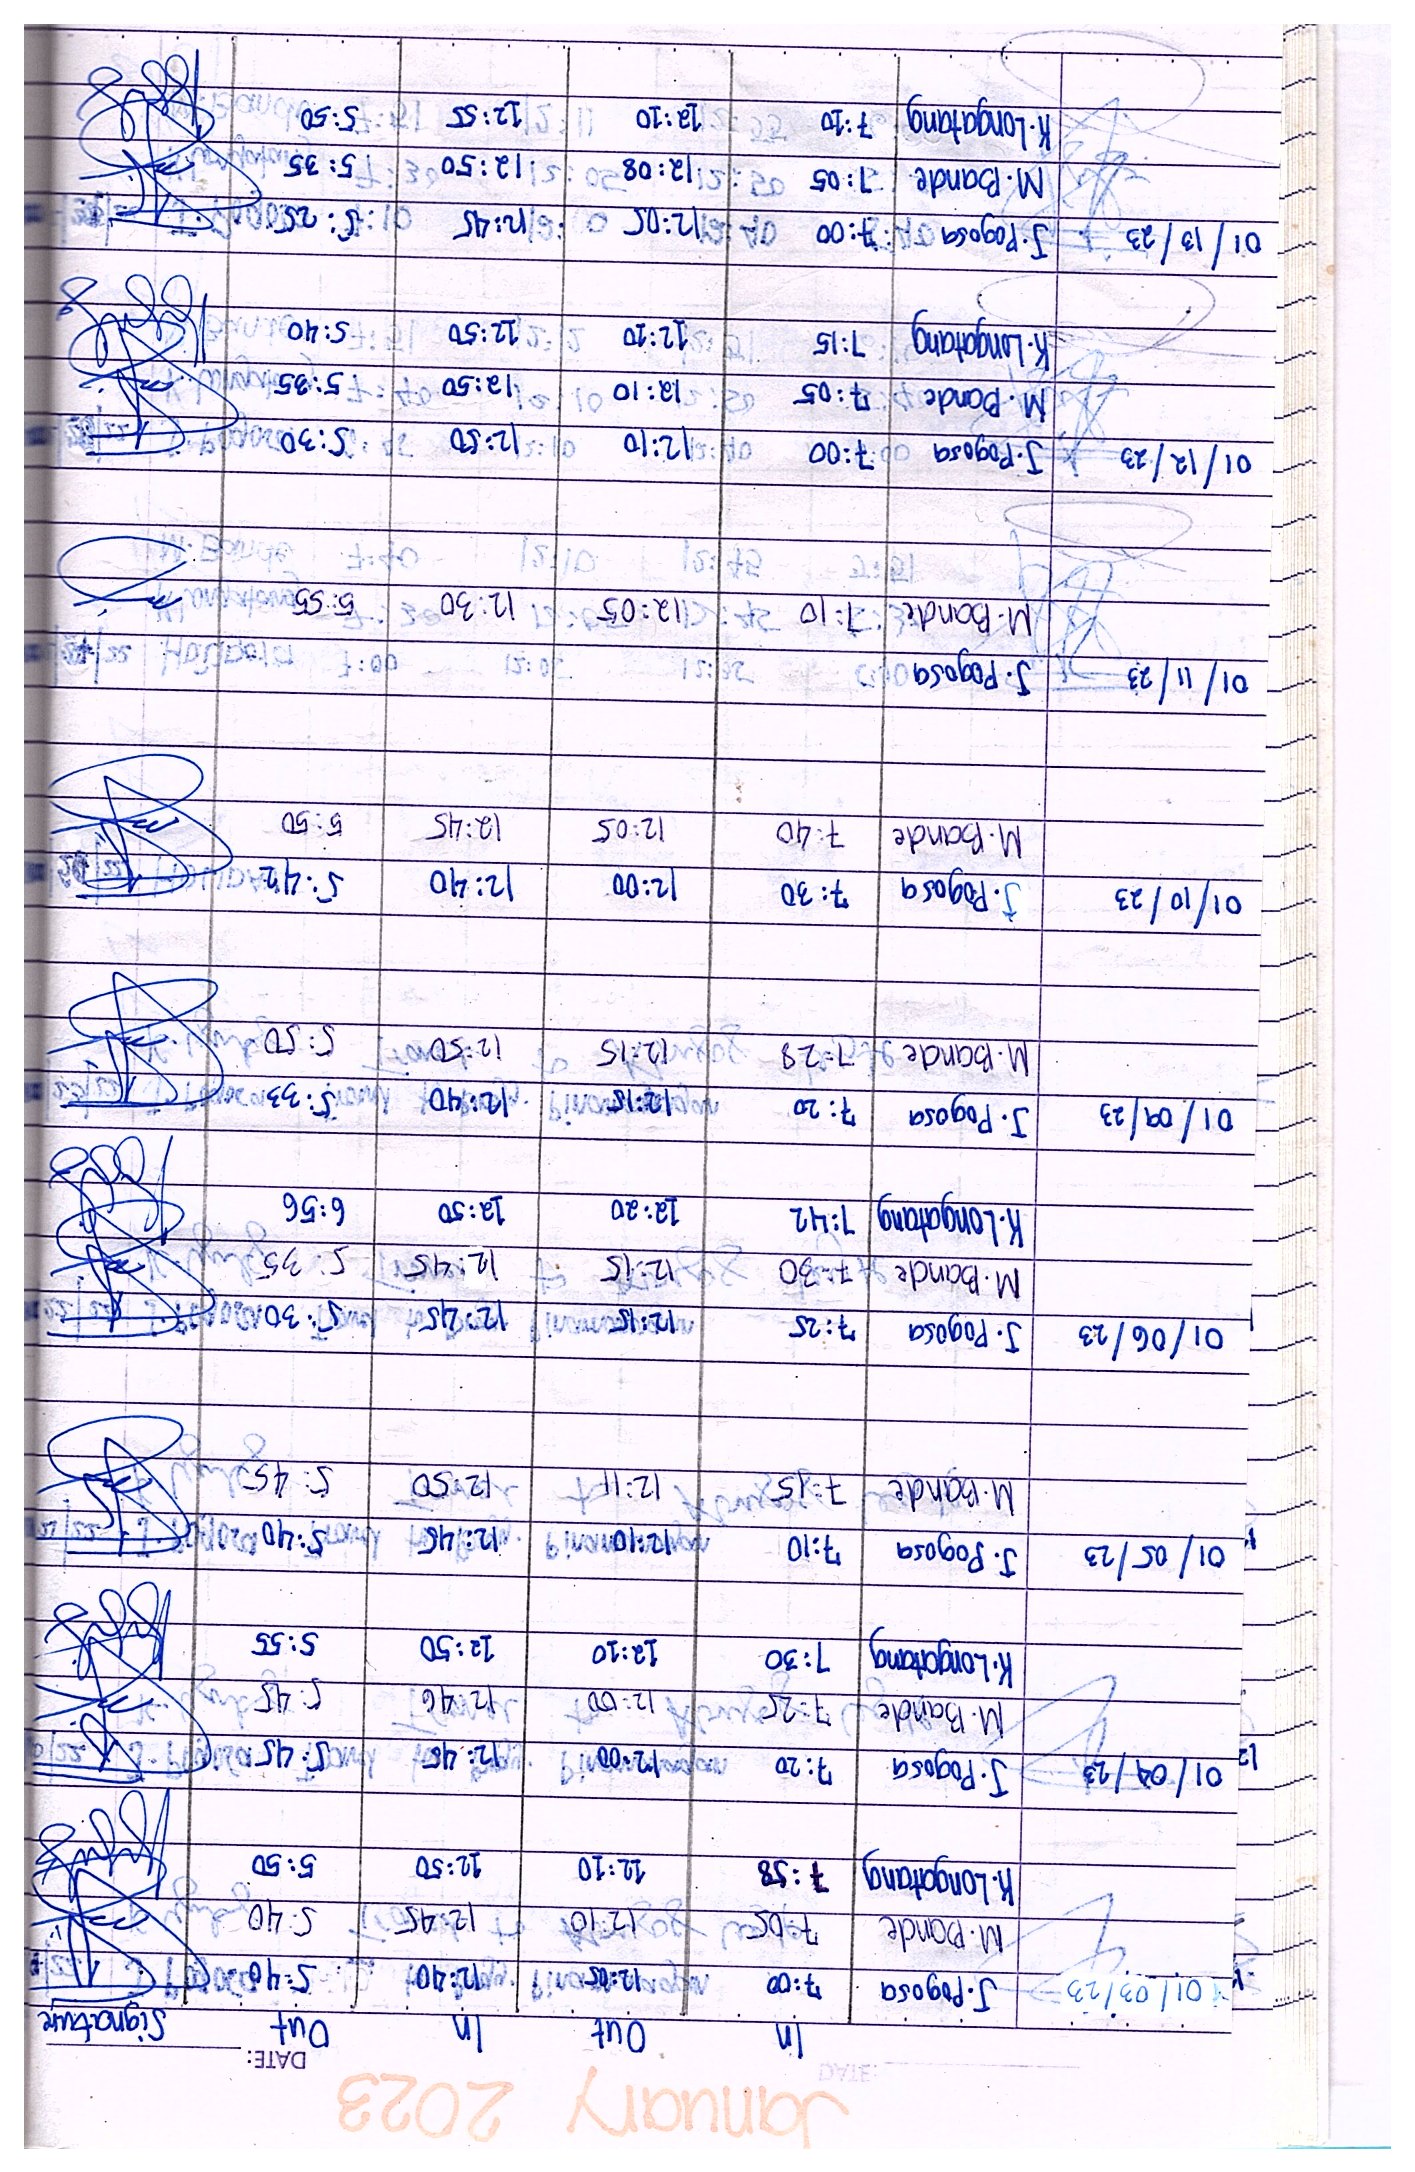 January 2023
DATE:
In Out In Out Signature
01/03/23 J. Pogosa 7:00 12:05 12:40 5:40
M. Bande 7:05 12:10 12:45 5:40
K. Longatang 7:58 12:10 12:50 5:50
01/04/23 J. Pogosa 7:20 12:00 12:45 5:45
M. Bande 7:25 12:00 12:46 5:45
K. Longatang 7:30 12:10 12:50 5:55
01/05/23 J. Pogosa 7:10 12:10 12:45 5:40
M. Bande 7:15 12:11 12:50 5:45
01/06/23 J. Pogosa 7:25 12:15 12:45 5:30
M. Bande 7:30 12:15 12:45 5:35
K. Longatang 7:42 12:20 12:50 6:56
01/09/23 J. Pogosa 7:20 12:15 12:40 5:33
M. Bande 7:28 12:15 12:50 5:50
01/10/23 J. Pogosa 7:30 12:00 12:40 5:42
M. Bande 7:40 12:05 12:45 5:50
01/11/23 J. Pogosa
M. Bande 7:10 12:05 12:30 5:55
01/12/23 J. Pogosa 7:00 12:10 12:50 5:30
M. Bande 7:05 12:10 12:50 5:35
K. Longatang 7:15 12:20 12:50 5:40
01/13/23 J. Pogosa 7:00 12:05 12:45 5:25
M. Bande 7:05 12:08 12:50 5:35
K. Longatang 7:20 12:10 12:55 5:50